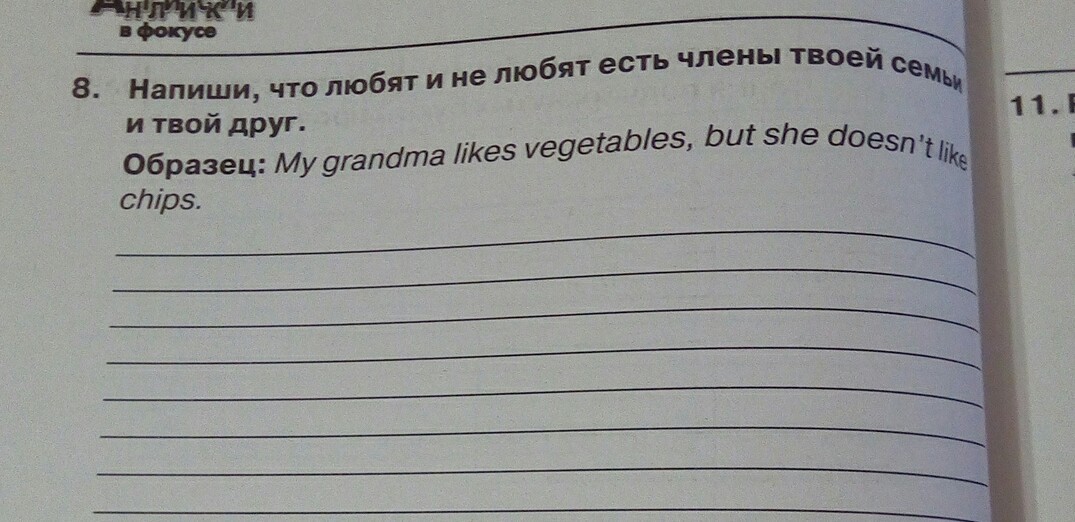 Английский
в фокусе
8. Напиши, что любят и не любят есть члены твоей семьи
и твой друг.
Образец: My grandma likes vegetables, but she doesn't like
chips.
11.